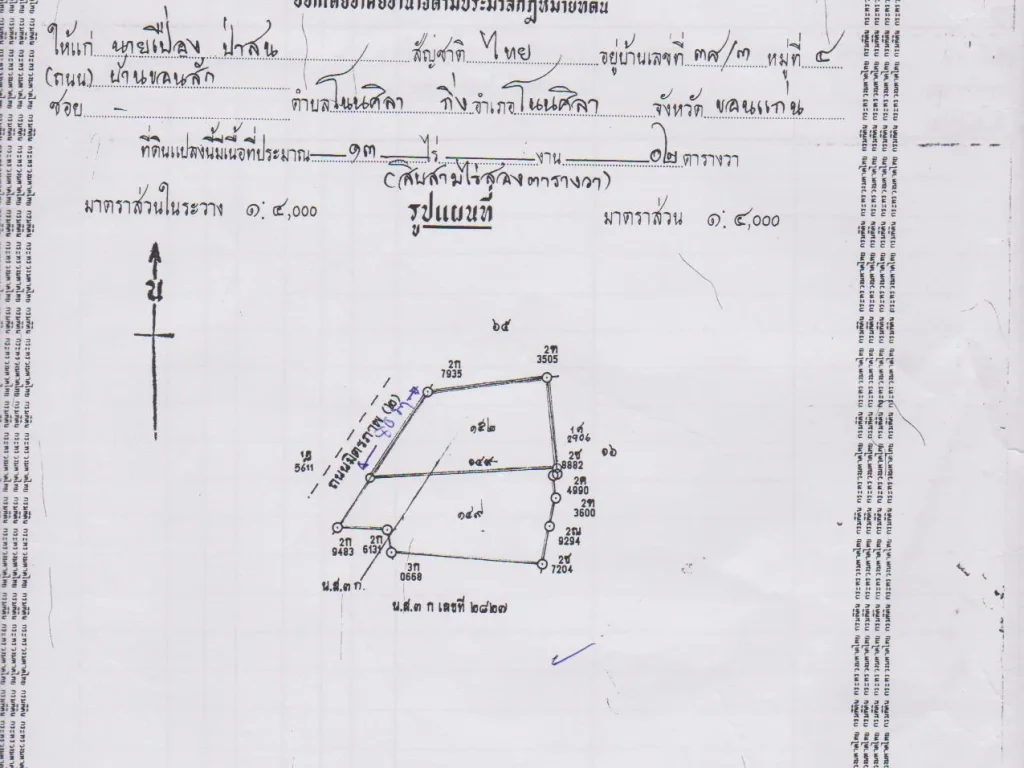 ออกโดยอาศัยอำนาจตามประมวลกฎหมายที่ดิน
ให้แก่ นายเปลื่อง ป่าสน สัญชาติ ไทย อยู่บ้านเลขที่ ๓๘/๓ หมู่ที่ ๔
(ถนน) บ้านขอนสัก
ซอย - ตำบลโนนศิลา กิ่งอำเภอโนนศิลา จังหวัด ขอนแก่น
ที่ดินแปลงนี้มีเนื้อที่ประมาณ ๑๓ ไร่ งาน ๐๒ ตารางวา
(สิบสามไร่สองตารางวา)
มาตราส่วนในระวาง ๑: ๔,๐๐๐ รูปแผนที่ มาตราส่วน ๑: ๔,๐๐๐
น
๖๕
2ก
7935
2ฑ
3505
ถนนมิตรภาพ (๒)
40 m
๑๕๒
2906
๑๖
5611
๑๔๙
2ช
8882
2ค
4990
2ฑ
3600
๑๔๙
2ณ
9294
2ก
9483
2ก
6131
3ก
0668
2ช
7204
น.ส.๓ ก.
น.ส.๓ ก เลขที่ ๒๘๒๗